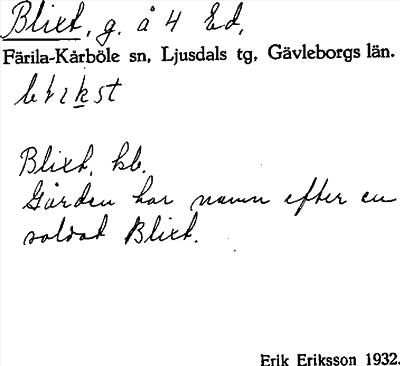 Blixt, g. å 4 Ed,
Färila-Kårböle sn, Ljusdals tg, Gävleborgs län.
Blixt. kb.
Gården har namn efter en
soldat Blixt.
Erik Eriksson 1932.